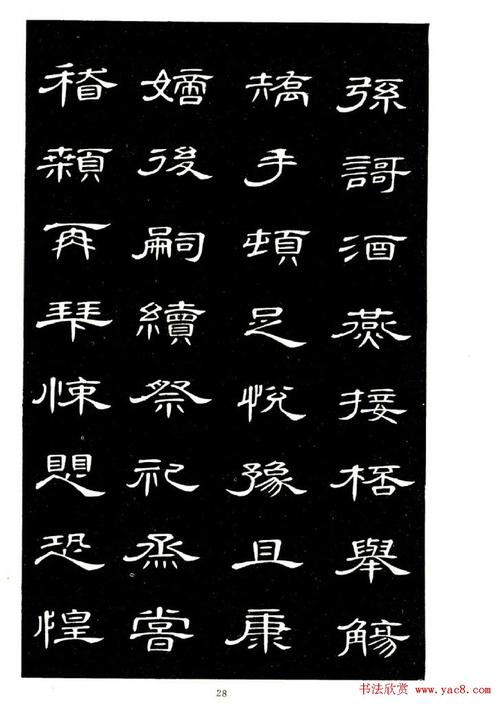 弦謌酒燕接桮舉觴
矯手頓足悅豫且康
嫡後嗣續祭祀烝嘗
稽顙再拜悚愳恐惶
28
书法欣赏 www.yac8.com